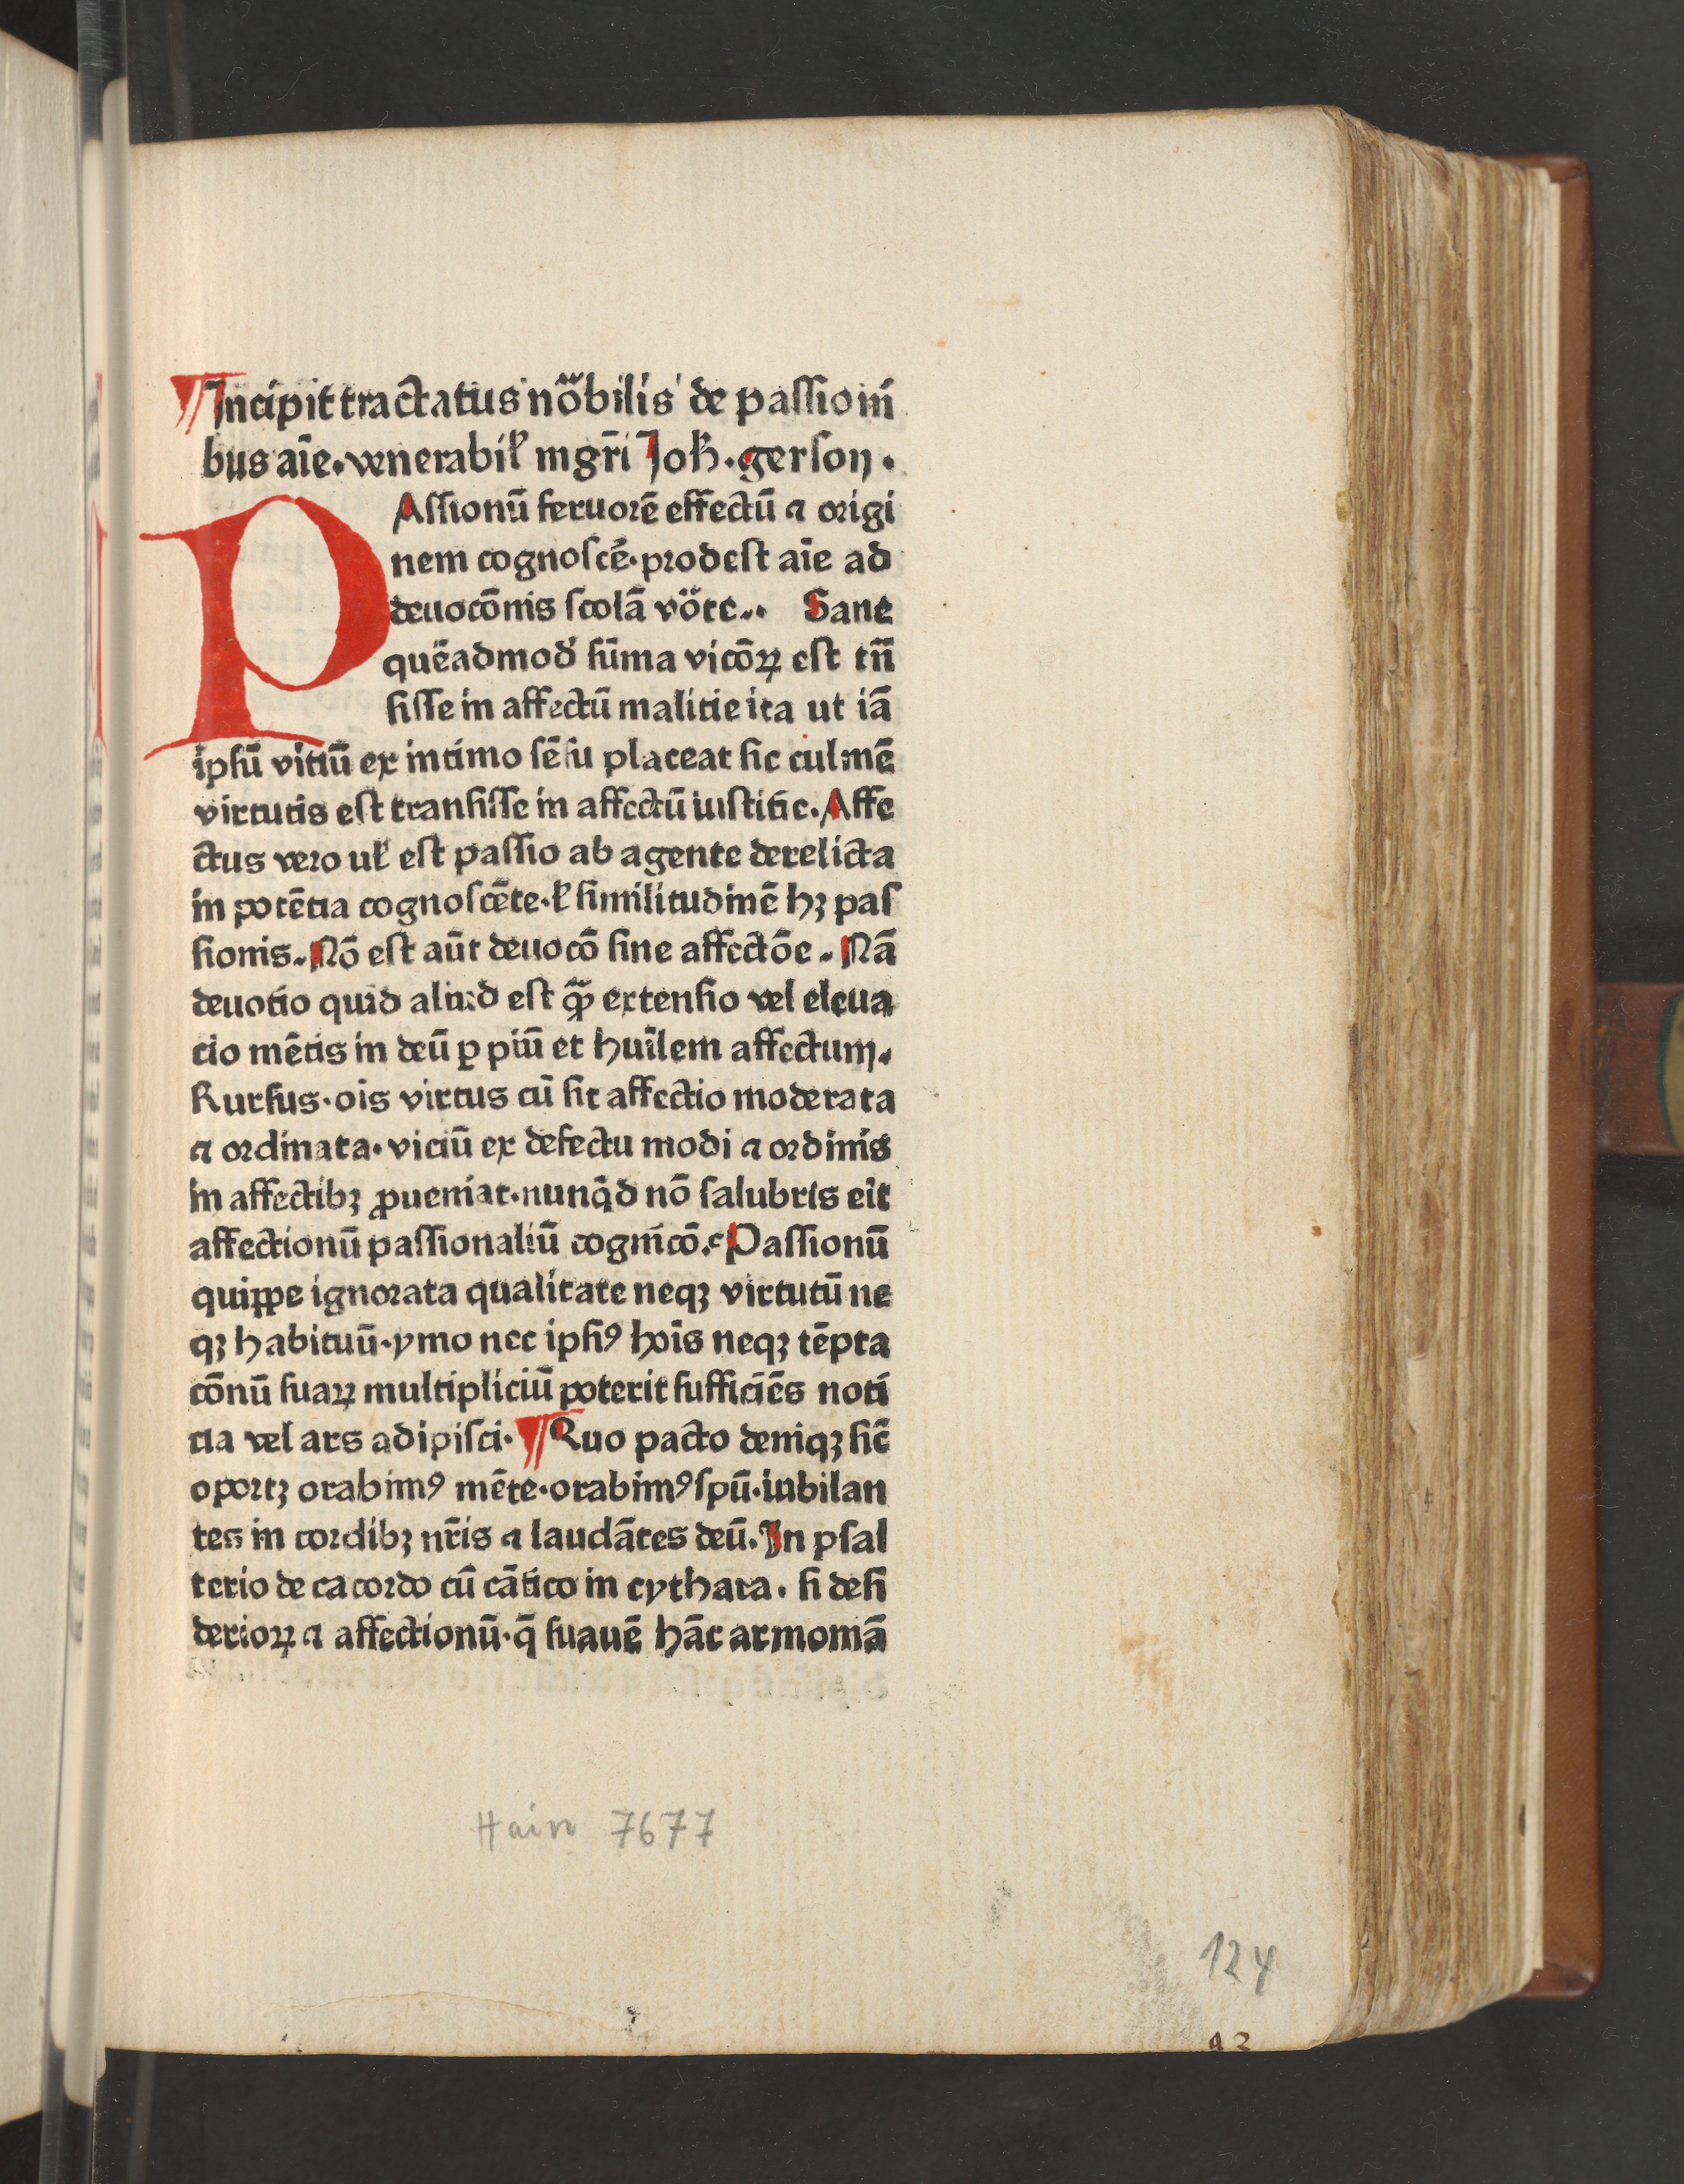 ¶Incipit tractatus nobilis de passioni
bus aīe. venerabilꝭ mgr̄i Joh̄. gerson.
PAssionū feruorē effectū ⁊ origi
nem cognoscē. prodest aīe ad
deuocōnis scolā vōte.. Sane
quēadmod̓ sūma vicōꝝ est tn̄
sisse in affectū malitie ita ut iā
ipsū vitiū ex intimo sēsu placeat sic culmē
virtutis est transisse in affectū iustitie. Affe
ctus vero ul̓ est passio ab agente derelicta
in potētia cognoscēte. l̓ similitudinē hꝫ pas
sionis. Nō est aūt deuocō sine affectōe. Nā
deuotio quid aliud est qͫꝫ extensio vel eleua
tio mētis in deū ꝑ piū et huīlem affectum.
Rursus. oīs virtus cū sit affectio moderata
⁊ ordinata. viciū ex defectu modi ⁊ ordinis
in affectibꝫ ꝓueniat. nunq̇d nō salubris eīt
affectionū passionaliū cognīcō. Passionū
quippe ignorata qualitate neqꝫ virtutū ne
qꝫ habituū. ymo nec ipsiꝰ hoīs neqꝫ tēpta
cōnū suaꝝ multipliciū poterit sufficiēs noti
tia vel ars adipisci. ¶Quo pacto deniqꝫ sic̄
oportꝫ orabimꝰ mēte. orabimꝰ spū. iubilan
tes in cordibꝫ nr̄is ⁊ laudātes deū. In psal
terio decacordo cū cātico in cythara. si desi
derioꝝ ⁊ affectionū. q̄ suauē hāc armoniā
Hain 7677
124